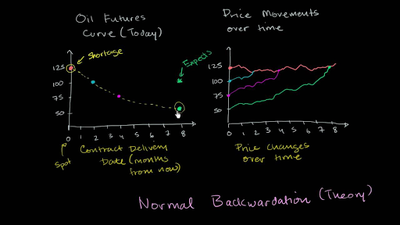 Oil Futures
Curve (Today)
Shortage
Expects
125
100
75
50
0 1 2 3 4 5 6 7 8
Spot
Contract Delivery
Date (months
from now)
Price Movements
over time
125
100
75
50
0 1 2 3 4 5 6 7 8
Price changes
over time
Normal Backwardation (Theory)